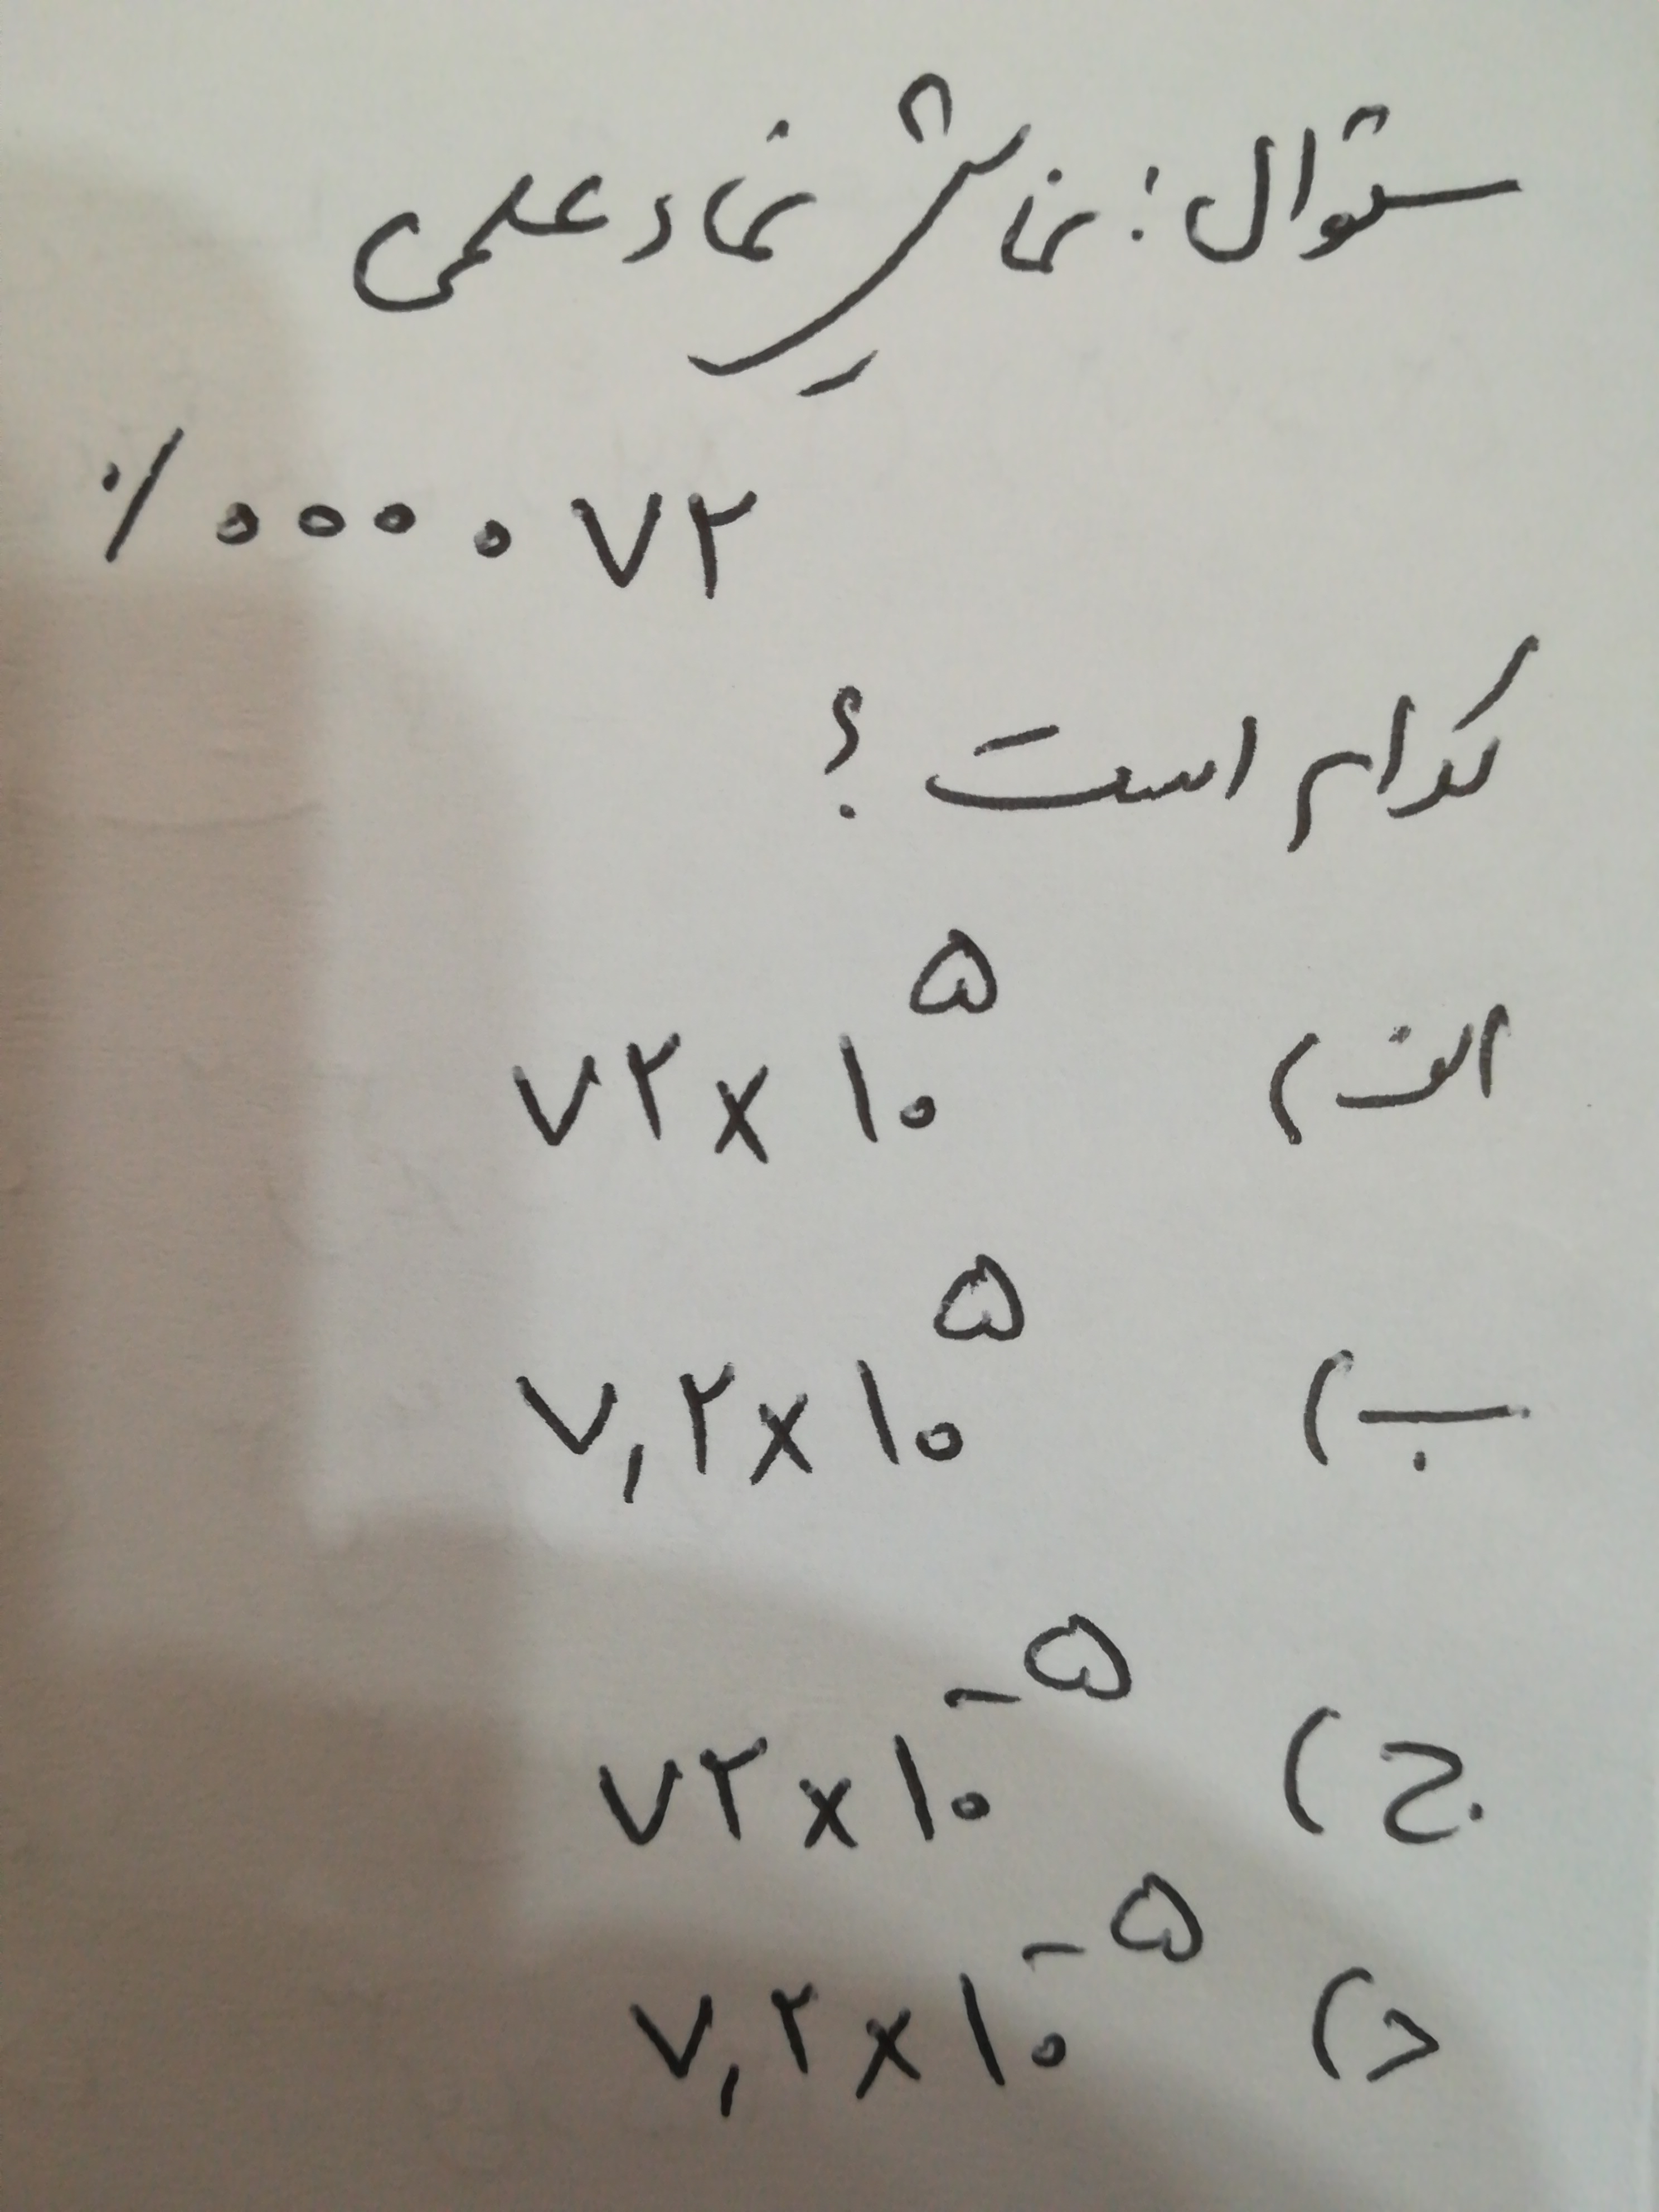 سئوال: نمایش نماد علمی
۰/۰۰۰۰۷۲
کدام است؟
الف) ۷۲×۱۰^۵
ب) ۷,۲×۱۰^۵
ج) ۷۲×۱۰^-۵
د) ۷,۲×۱۰^-۵